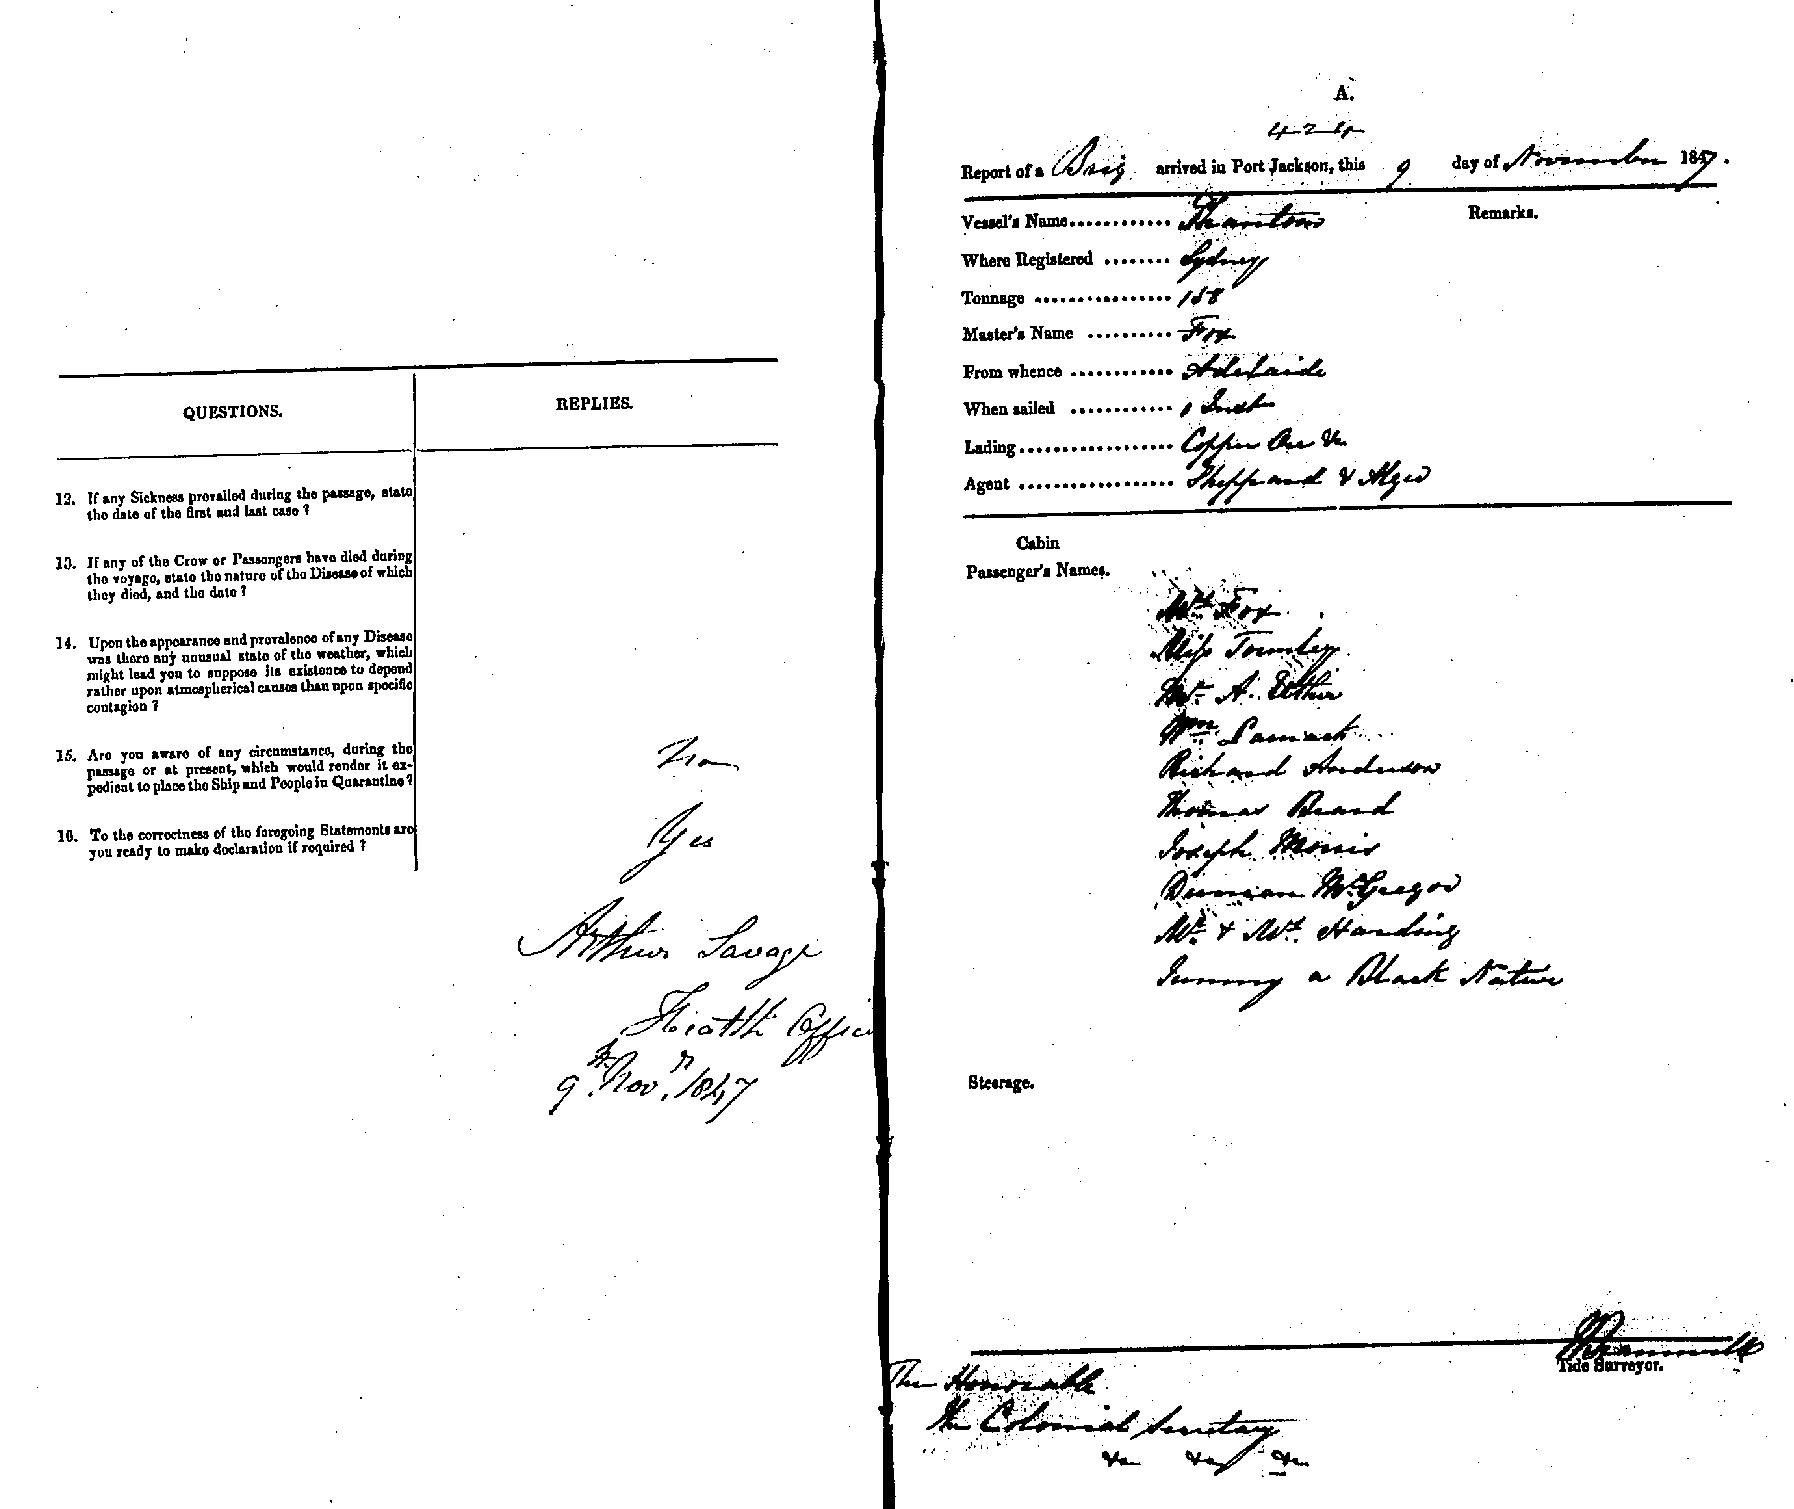 QUESTIONS.
REPLIES.
12. If any Sickness prevailed during the passage, state
the date of the first and last case ?
13. If any of the Crew or Passengers have died during
the voyage, state the nature of the Disease of which
they died, and the date ?
14. Upon the appearance and prevalence of any Disease
was there any unusual state of the weather, which
might lead you to suppose its existence to depend
rather upon atmospherical causes than upon specific
contagion ?
15. Are you aware of any circumstance, during the
passage or at present, which would render it ex-
pedient to place the Ship and People in Quarantine ?
16. To the correctness of the foregoing Statements are
you ready to make declaration if required ?
Yes
Arthur Savage
Health Officer
9th Novr. 1847
A.
424
Report of a Brig arrived in Port Jackson, this 9 day of November 1847.
Vessel's Name............
Remarks.
Where Registered ........ Sydney
Tonnage ................. 158
Master's Name .......... Fox
From whence ............ Adelaide
When sailed ............ 1 Inst
Lading.................. Copper Ore &c
Agent .................. Sheppard & Alger
Cabin
Passenger's Names.
Mrs Fox
Miss Townley
Mr. A.
Wm
Richard Anderson
Thomas Beard
Joseph Morris
Duncan McGregor
Mr. & Mrs. Harding
Jummy a Black Native
Steerage.
Tide Surveyor.
The Honorable
The Colonial Secretary
&c &c &c